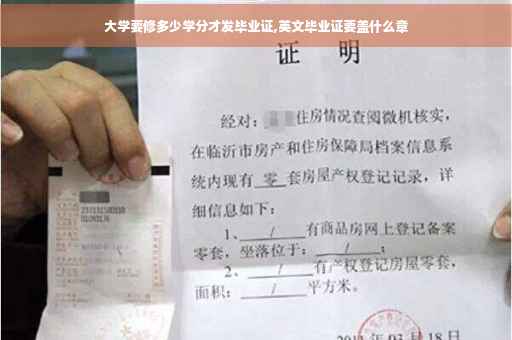 大学要修多少学分才发毕业证,英文毕业证要盖什么章
证 明
经对：住房情况查阅微机核实，
在临沂市房产和住房保障局档案信息系
统内现有 零 套房屋产权登记记录，详
细信息如下：
1、 / 有商品房网上登记备案
零套，坐落位于： / ；
2、 / 有产权登记房屋零套，
面积： / 平方米。
18日